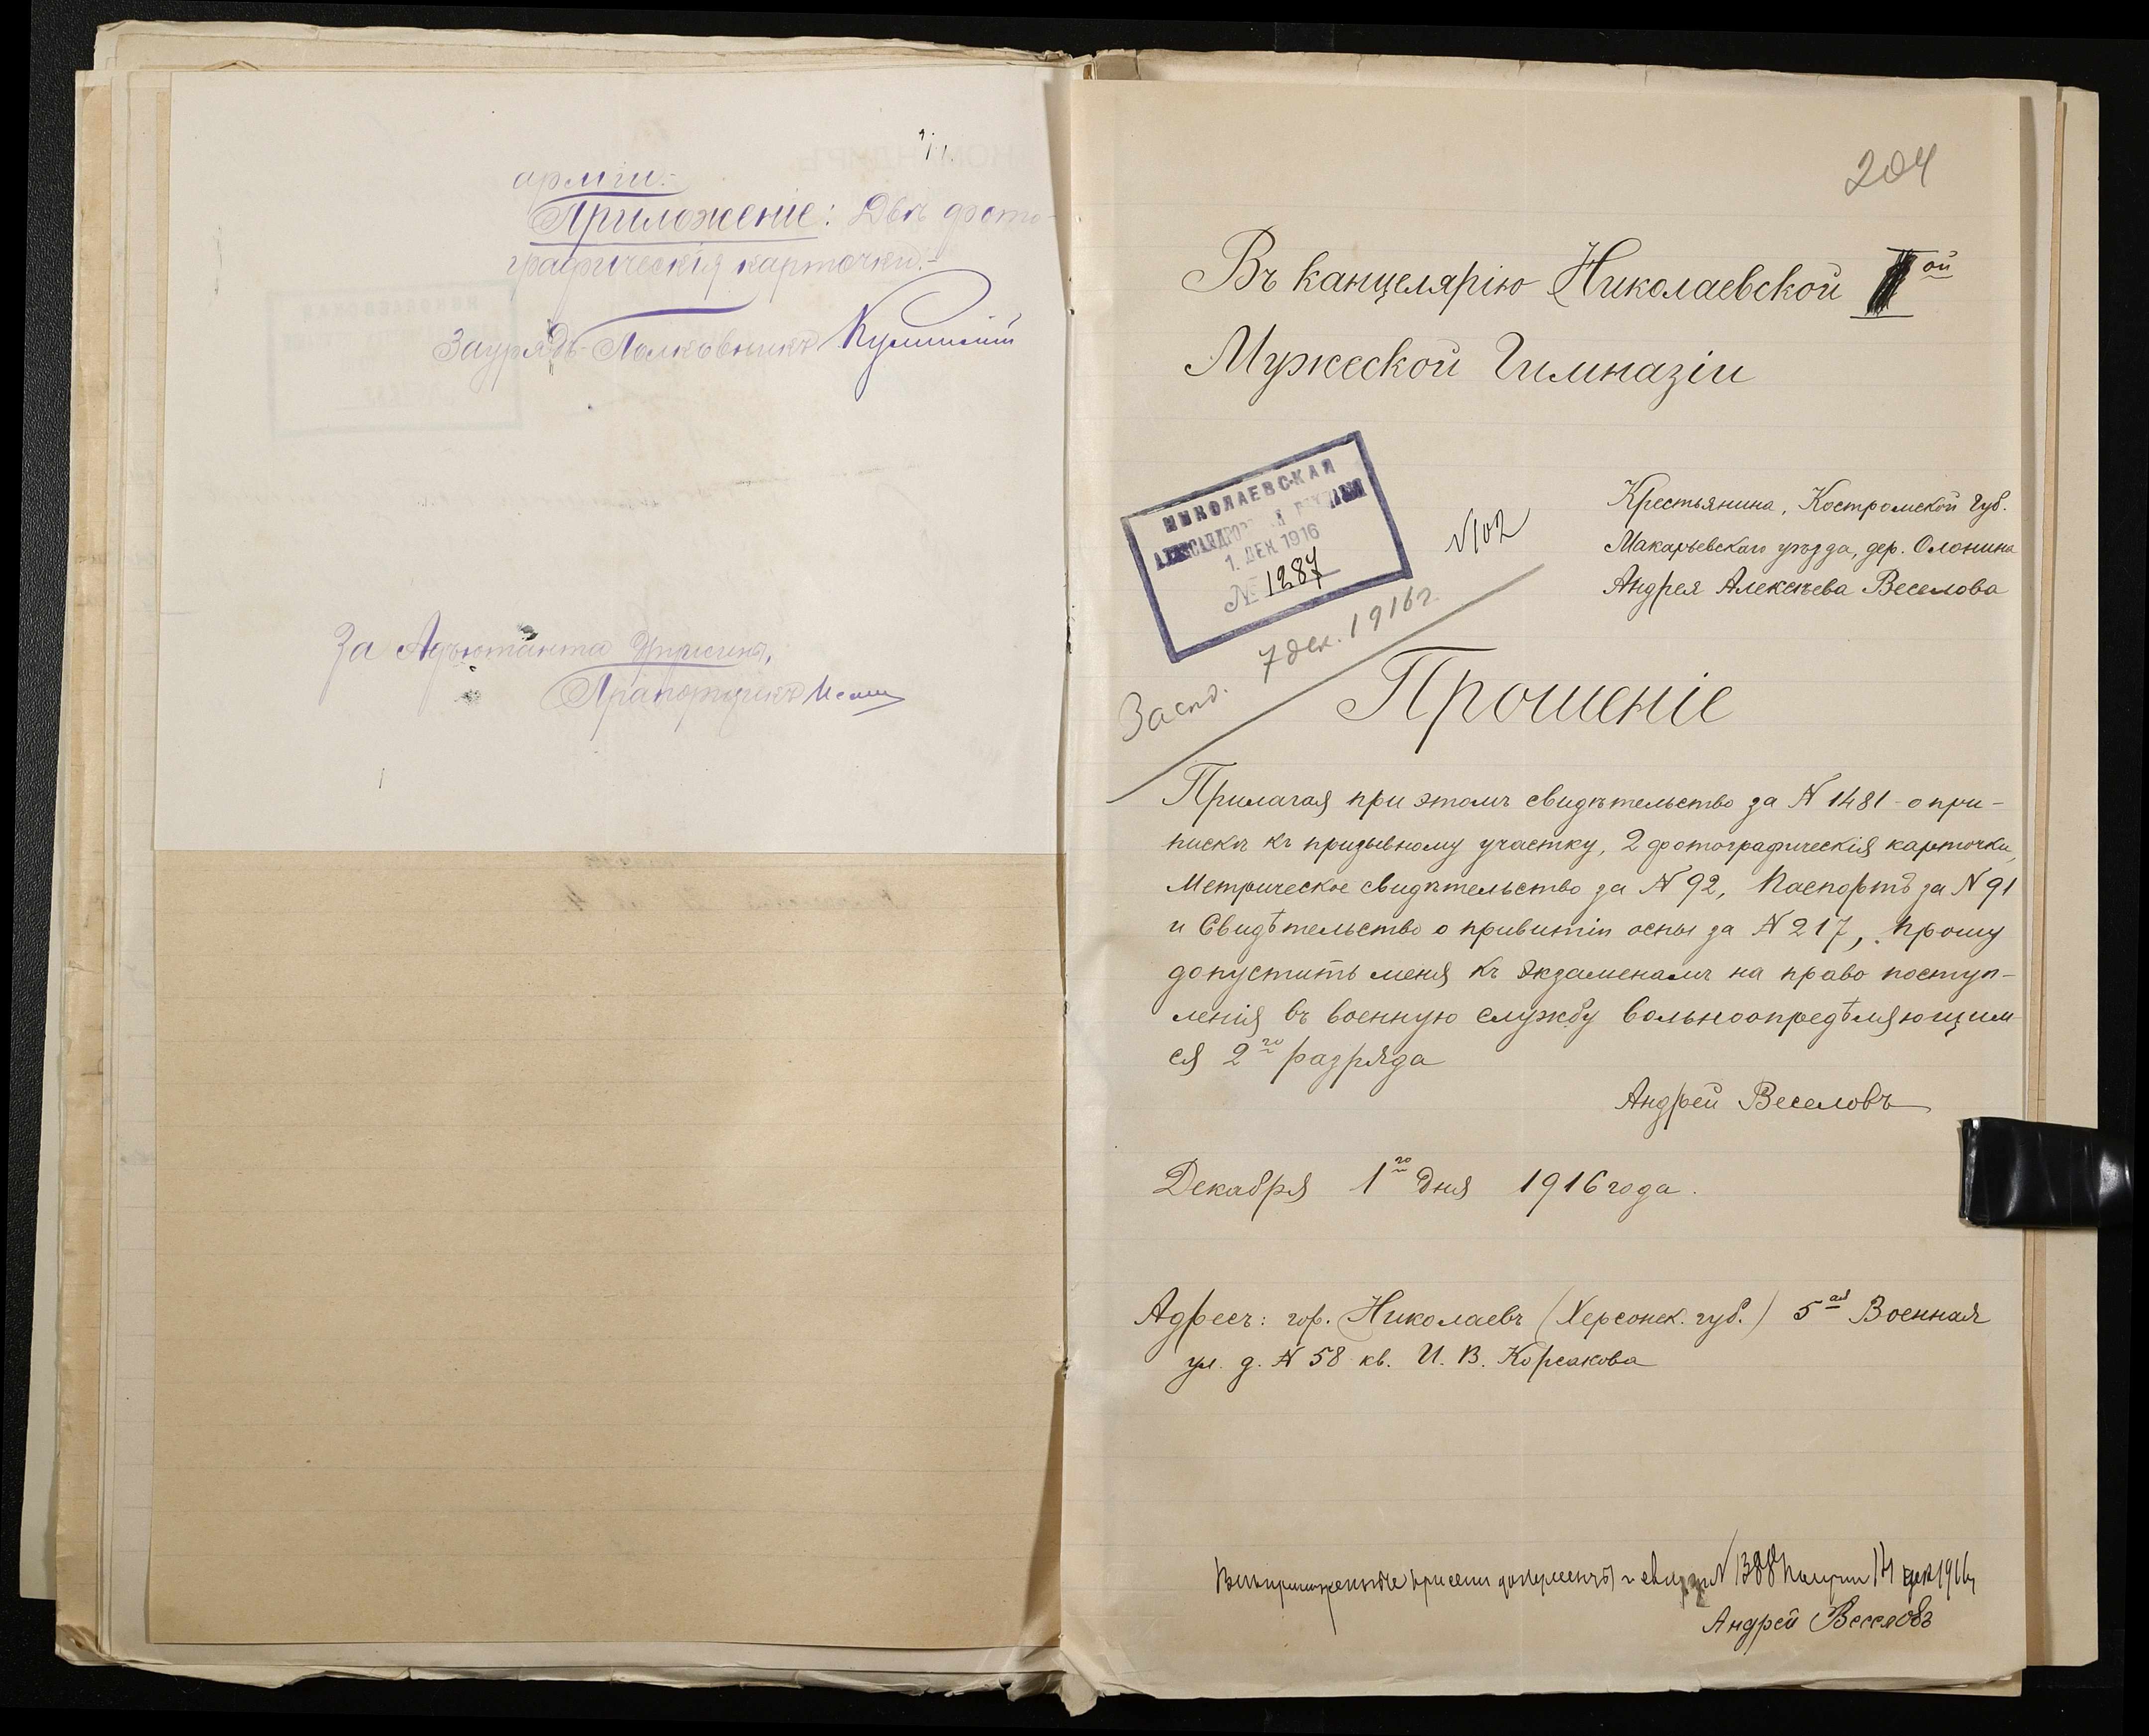 арміи.-
Приложеніе: Двѣ фото-
графическія карточки.-
Заурядъ-Полковникъ
За Адъютанта
Прапорщикъ
204
Въ канцелярію Николаевской ой
Мужеской Гимназіи
НИКОЛАЕВСКАЯ
1. ДЕК 1916
№ 1287
N102
Засѣд. 7 дек. 1916 г.
Крестьянина, Костромской Губ.
Макарьевскаго уѣзда, дер. Олонина
Андрея Алексѣева Веселова
Прошеніе
Прилагая при этомъ свидѣтельство за N 1481 - о при-
пискѣ къ призывному участку, 2 фотографическія карточки,
Метрическое свидѣтельство за N 92, Паспортъ за N 91
и Свидѣтельство о привитіи оспы за N 217, прошу
допустить меня къ экзаменамъ на право поступ-
ленія въ военную службу вольноопредѣляющим
ся 2го разряда
Андрей Веселовъ
Декабря 1го дня 1916 года.
Адресъ: гор. Николаевъ (Херсонск. губ.) 5ая Военная
ул. д. N 58 кв. И. В. Корсакова
документы и N 1388 14 дек 1916 г
Андрей Веселовъ